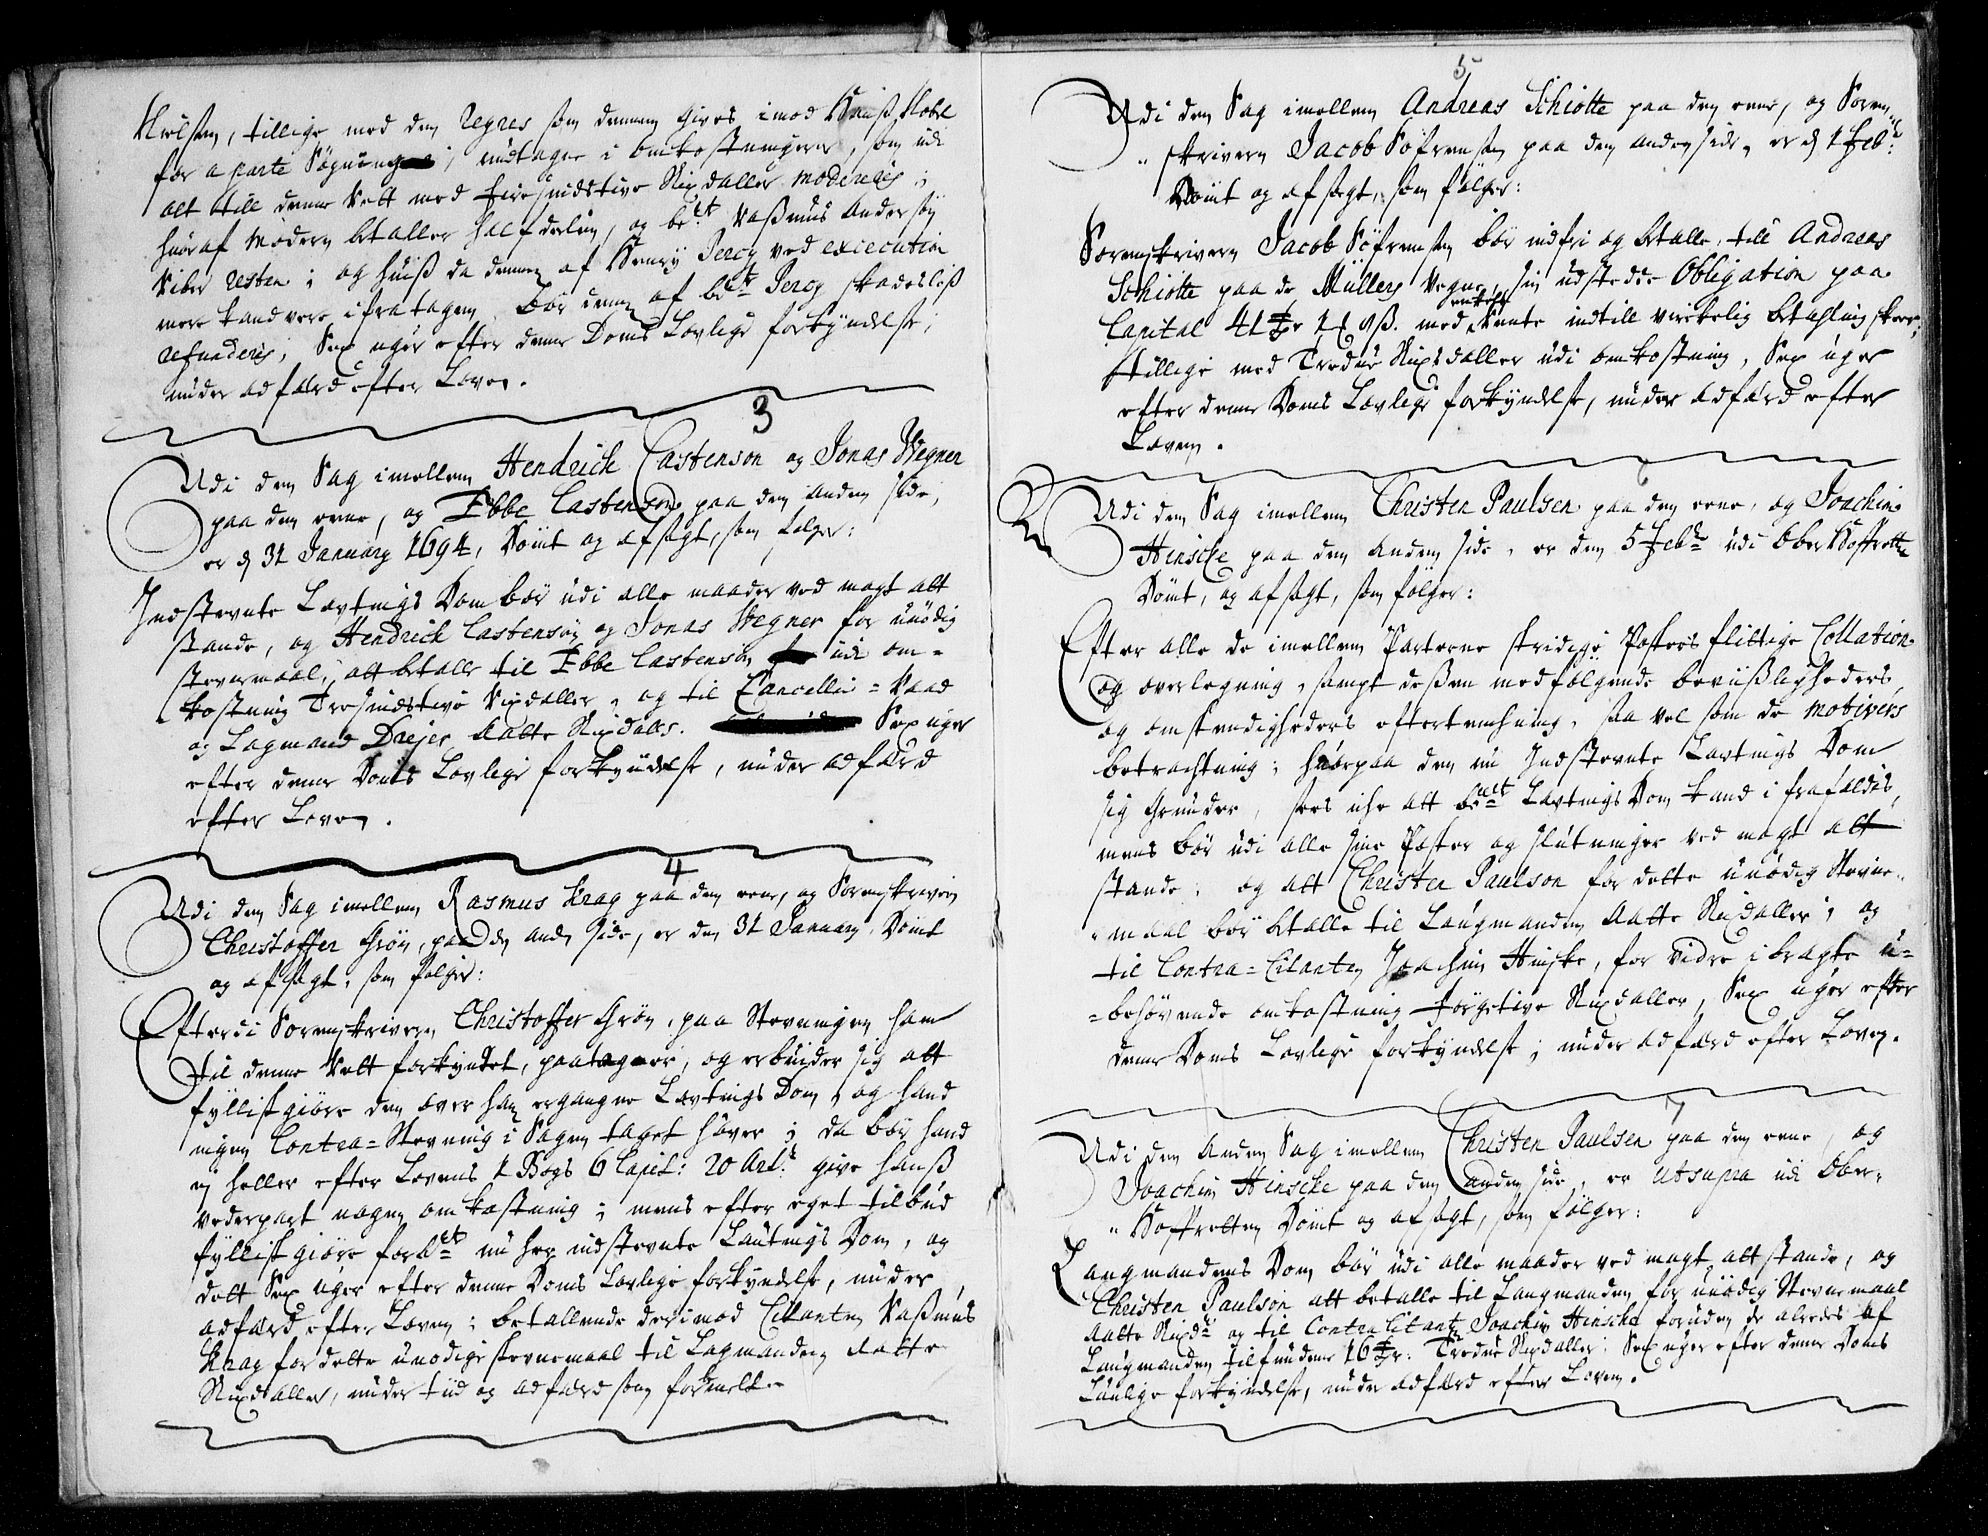 Nielsen, tillige med den regres som dennem gives imod Knuß Holst
for a parte Søgning, indtagne i omkostningerne, som udi
alt till denne Rett med fiiresindstive Rixdaller modereris;
hvoraf Modern betaller halfdeelen, og be.te Rasmus Andersøn
Riber resten; og huiß da dennem af Henrj Percy ved execution
mere kand vere ifratagen, bør dennem af be.te Percy skadesløß
refunderis, Sex uger efter denne Doms Lovlige forkyndelse,
under adfærd efter Loven.
3
Udi den Sag imellem Hendrich Castenson og Jonas Wegner
paa den eene, og Ebbe Castenson paa den anden side,
er d 31 January 1694, Dømt og afsagt, som følger:
Indstevnte Lavtings Dom bør udi alle maader ved magt att
stande, og Hendrich Castensøn og Jonas Wegner for unødig
stevnemaal, att betalle til Ebbe Castenson udi om-
kostning Tresindstive Rixdaller, og til Cancellie-Raad
og Lagmand Dreyer Aatte Rixdalr. Sex uger
efter denne Doms Lovlige forkyndelse, under adfærd
efter Loven.
4
Udi den Sag imellem Rasmus Krag paa den eene, og Sorenskriveren
Christoffer Grøn, paa den anden side, er den 31 January Dømt
og afsagt, som følger:
Efterdi Sorenskriveren Christoffer Grøn, paa Stevningen ham
til denne Rett forkyndet, paategner, og erbiuder sig att
fyllistgiøre den over ham ergangne Lavtings Dom, og hand
ingen Contra-Stevning i Sagen taget haver; da bør hand
ej heller efter Lovens 1 Bogs 6 Capit: 20 Art: give hanß
vederpart nogen omkostning; mens efter eget tilbud
fyllistgiøre for.te nu her indstevnte Lautings Dom, og
dett Sex uger efter denne Doms Lovlige forkyndelse, under
adfærd efter Loven; betallende derimod Citanten Rasmus
Krag for dette unødige stevnemaal til Lagmanden Aatte
Rixdaller, under tiid og adfærd som formelt.
5
Udi den Sag imellem Andreas Schiøtte paa den eene, og Soren-
skriveren Jacob Søfrensen paa den anden side, er d 1 Feb:
Dømt og afsagt, som følger:
Sorenskriveren Jacob Søfrensen bør indfri og betalle, till Andreas
Schiøtte paa de Müllers Vegne, sin udstedde Obligation paa
Capital 41 r 1 ß. med Rente indtill virkelig betaling skeer,
tillige med Tredive Rixdaller udi omkostning, Sex uger
efter denne Doms Lovlige forkyndelse, under adfærd efter
Loven.
6
Udi den Sag imellem Christen Paulsen paa den eene, og Joachim
Hinscke paa den anden side, er den 5 Feb. udi Ober Hoffretten
Dømt, og afsagt, som følger:
Efter alle de imellem Parterne stridige Posters flittige Collation
og overlegning, sampt dessen medfølgende beviißligheders,
og omstendigheders eftertenchning, saa vel som de motivers
betrachtning; hvorpaa den nu Indstevnte Lavtings Dom
sig grunder, sees iche att be.te Lavtings Dom kand ifrafaldis,
mens bør udi alle sine Poster og slutninger ved magt att
stande, og att Christen Paulson for dette unødig Stevne-
maal bør betalle til Laugmanden Aatte Rixdaller, og
til Contra-Citanten Joachim Hinske, for videre ibragte u-
behøvende omkostning førgetive Rixdaller, Sex uger efter
denne Doms Lovlige forkyndelse; under adfærd efter Loven.
7
Udi den Anden Sag imellem Christen Paulsen paa den eene, og
Joachim Hinscke paa den anden side, er utsupra udi Ober-
Hoffretten Dømt og afsagt, som følger:
Laugmandens Dom bør udi alle maader ved magt att stande, og
Christen Paulson att betalle til Laugmanden for unødig Stevnemaal
Aatte Rixdr og til Contra Citanten Joachim Hinscke foruden de alrede af
Laugmanden tilfundene 16 r: Tredive Rixdaller; Sex uger efter denne Doms
Laulige forkyndelse, under adfærd efter Loven.